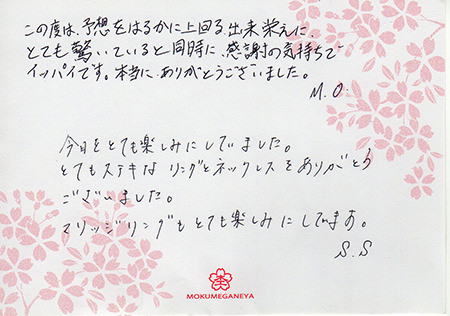 この度は、予想をはるかに上回る出来栄えに、
とても驚いていると同時に、感謝の気持ちで
イッパイです。本当に、ありがとうございました。
M.O.
今日をとても楽しみにしていました。
とてもステキなリングとネックレスをありがとう
ございました。
マリッジリングもとても楽しみにしてます。
S.S
MOKUMEGANEYA